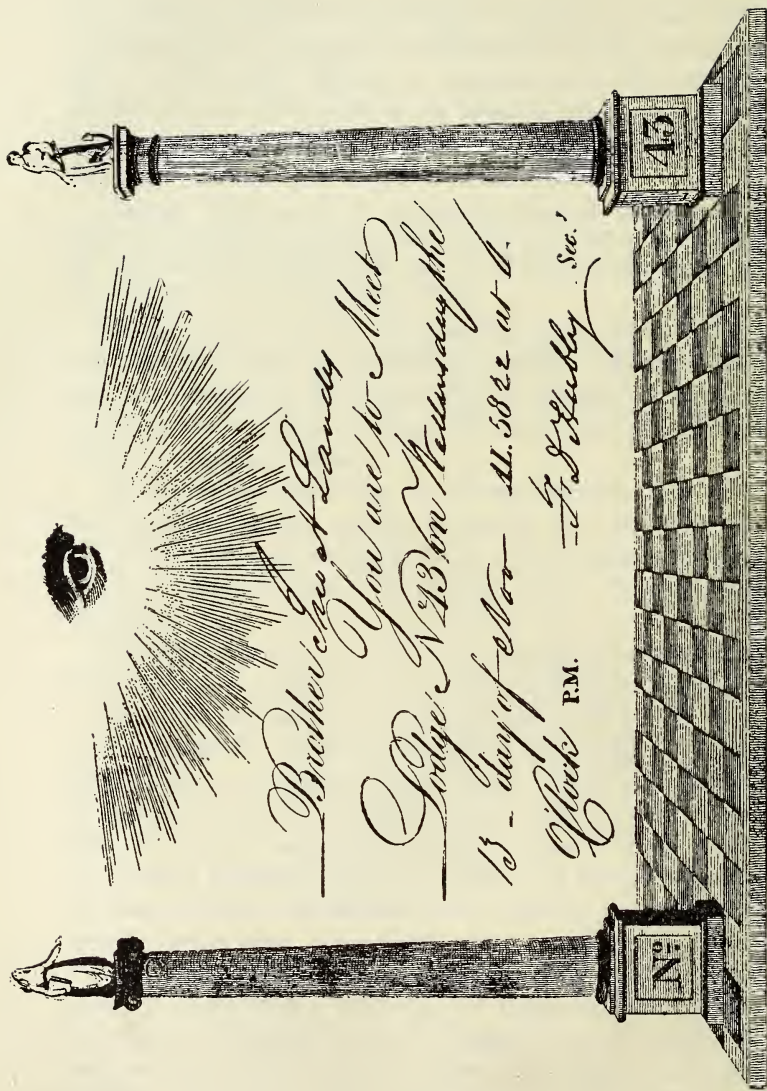 Brother
You are to Meet
Lodge Nº 43 on Wednesday the
13 - day of Nov AL. 5822 at 6.
O'Clock P.M. Hubley Sec.y
Nº 43